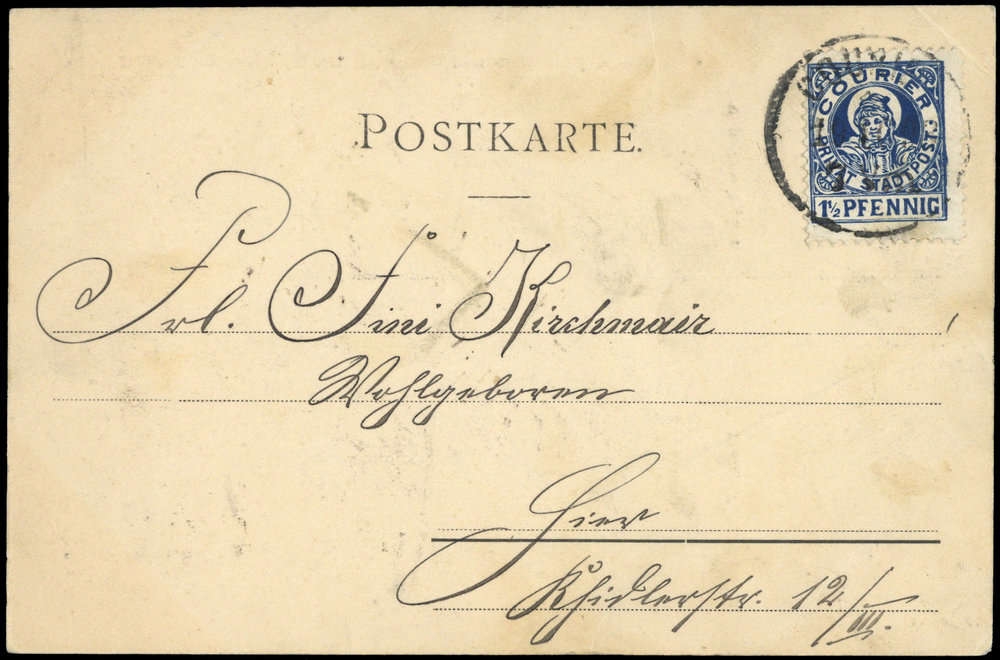 POSTKARTE.
COURIER
PRIVAT STADTPOST
1½ PFENNIG
Frl. Fini Kirchmair
Wohlgeboren
Hier
12/III.